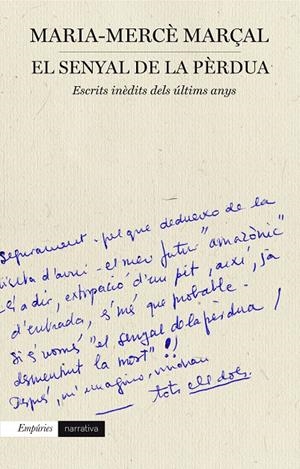 MARIA-MERCÈ MARÇAL
EL SENYAL DE LA PÈRDUA
Escrits inèdits dels últims anys
segurament - pel que dedueixo de la
visita d'avui - el meu futur "amazònic"
-és a dir, extirpació d'un pit, així, ja
d'entrada, s'més que probable.
Si és només "el senyal de la pèrdua /
desmentint la mort"!!
Després, m'imagino, vindran
tots els dols.
Empúries narrativa